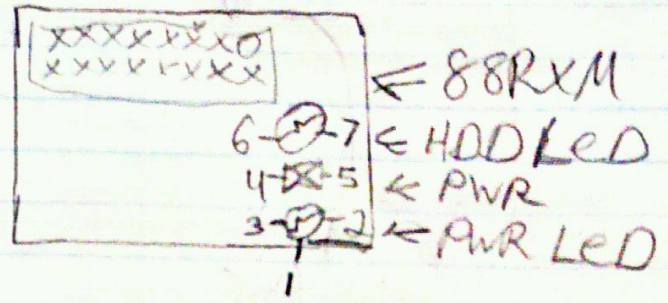 XXXXXXXO
XXXXXXXX
88RXM
6 7 HDD LeD
4 5 PWR
3 2 PWR LeD
1